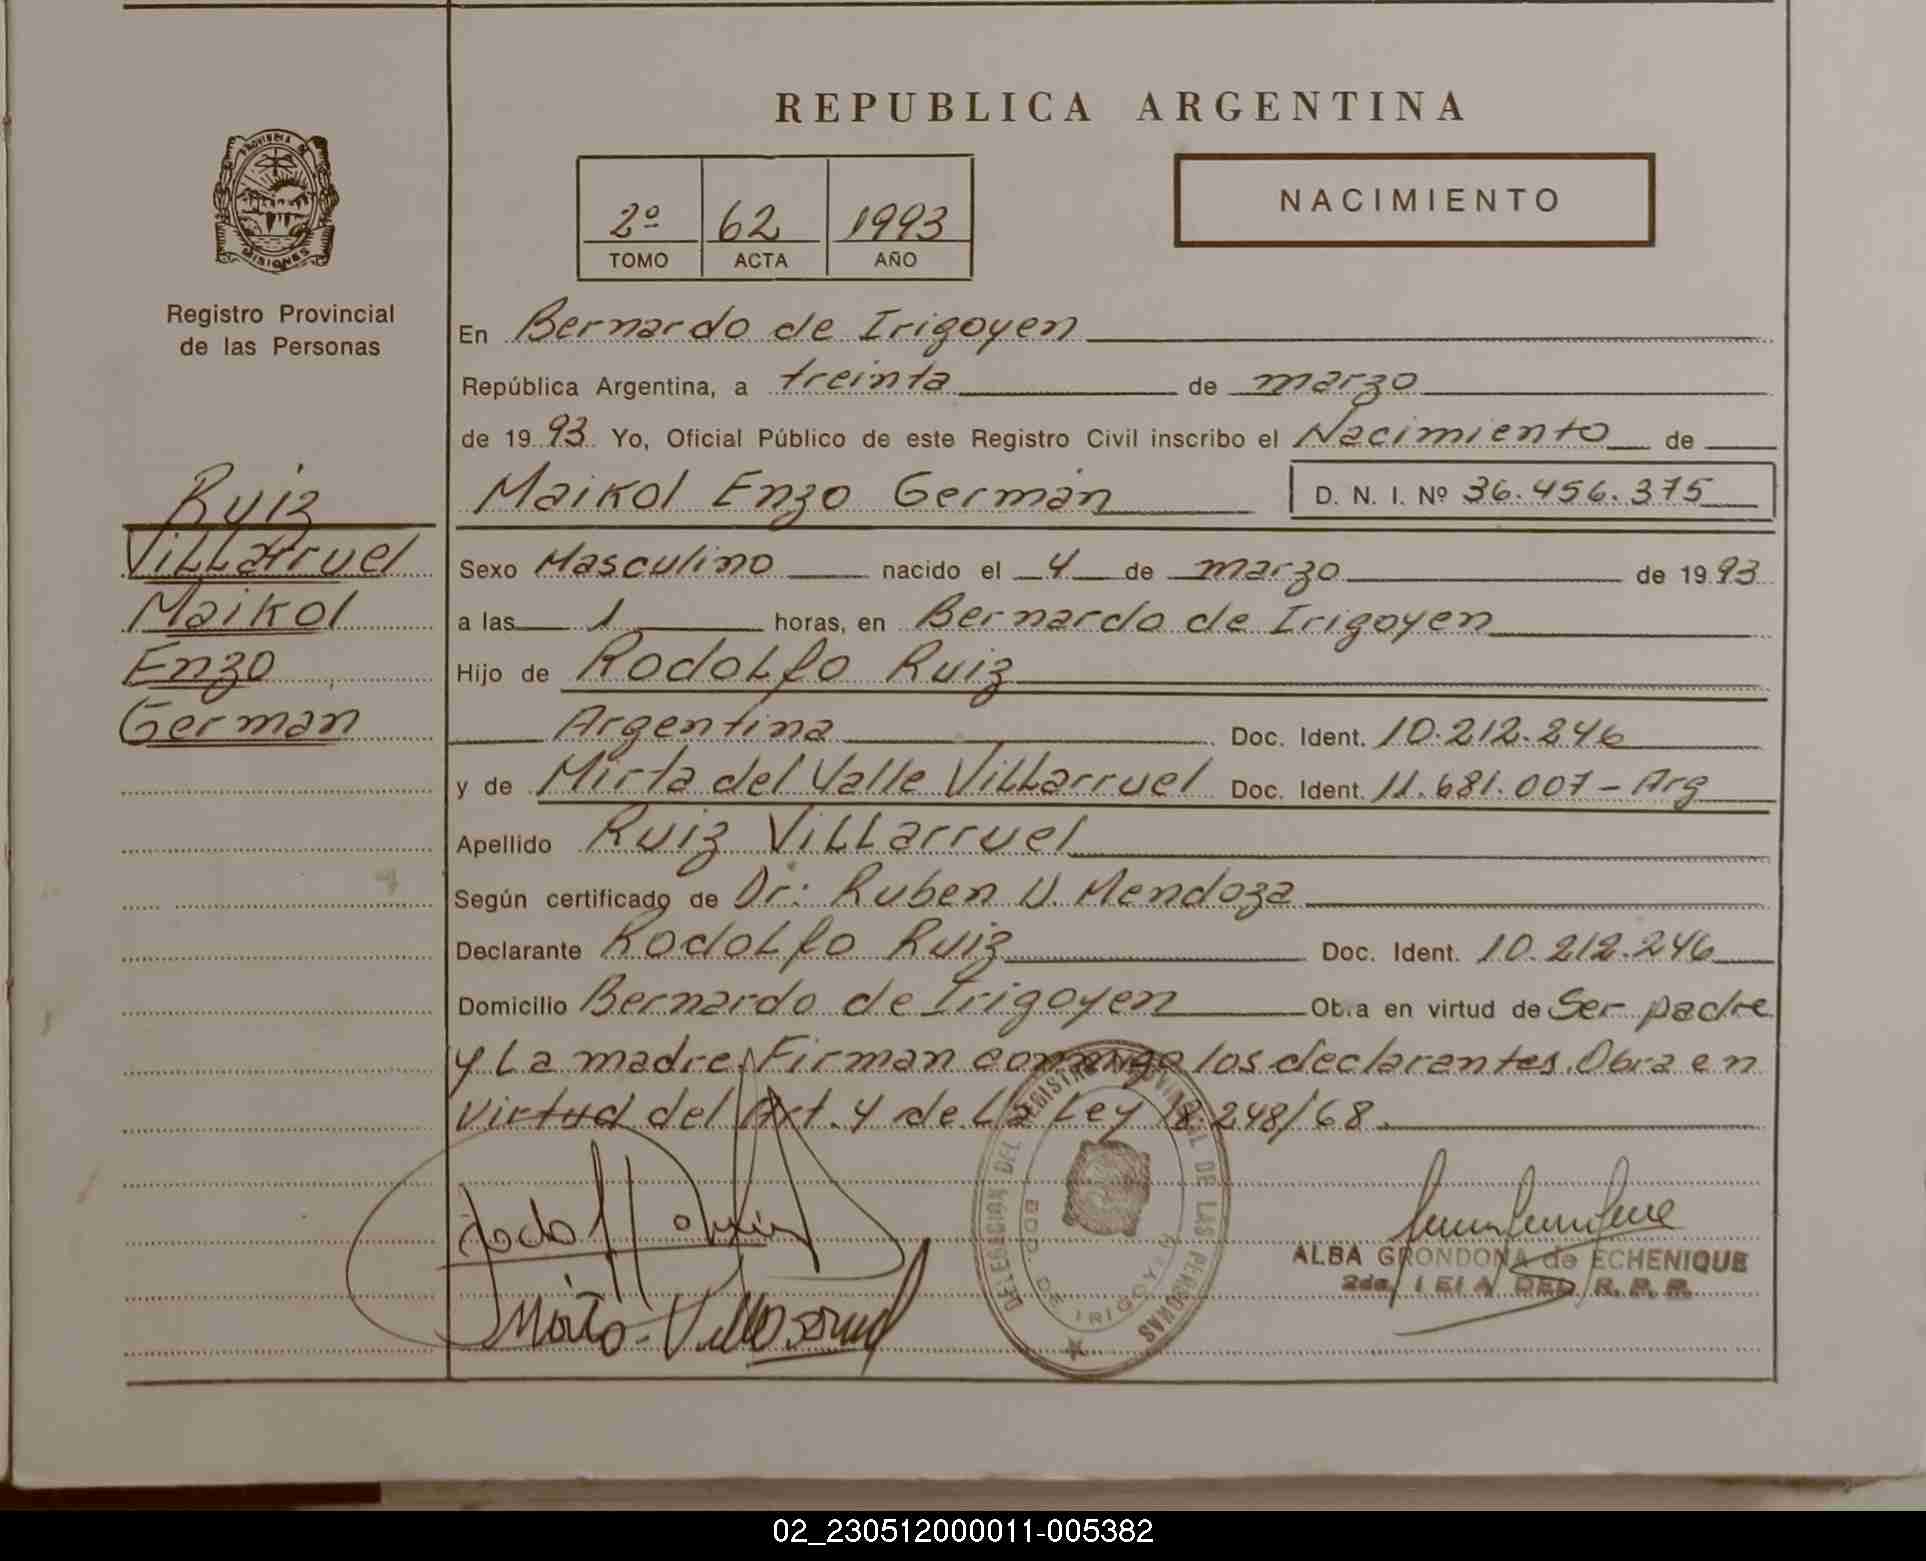 REPUBLICA ARGENTINA
NACIMIENTO
2º 62 1993
TOMO ACTA AÑO
PROVINCIA DE MISIONES
Registro Provincial
de las Personas
Ruiz
Villarruel
Maikol
Enzo
German
En Bernardo de Irigoyen
República Argentina, a treinta de marzo
de 1993 Yo, Oficial Público de este Registro Civil inscribo el Nacimiento de
Maikol Enzo Germán D. N. I. Nº 36.456.375
Sexo Masculino nacido el 4 de marzo de 1993
a las 1 horas, en Bernardo de Irigoyen
Hijo de Rodolfo Ruiz
Argentina Doc. Ident. 10.212.246
y de Mirta del Valle Villarruel Doc. Ident. 11.681.007 - Arg
Apellido Ruiz Villarruel
Según certificado de Dr: Ruben D. Mendoza
Declarante Rodolfo Ruiz Doc. Ident. 10.212.246
Domicilio Bernardo de Irigoyen Obra en virtud de Ser padre
y La madre. Firman conmigo los declarantes. Obra en
virtud del Art. 4 de La Ley 18.248/68.
DELEGACION DEL REGISTRO PROVINCIAL DE LAS PERSONAS
BDO. DE IRIGOYEN
Mirta - Villarruel
ALBA GRONDONA de ECHENIQUE
02_230512000011-005382